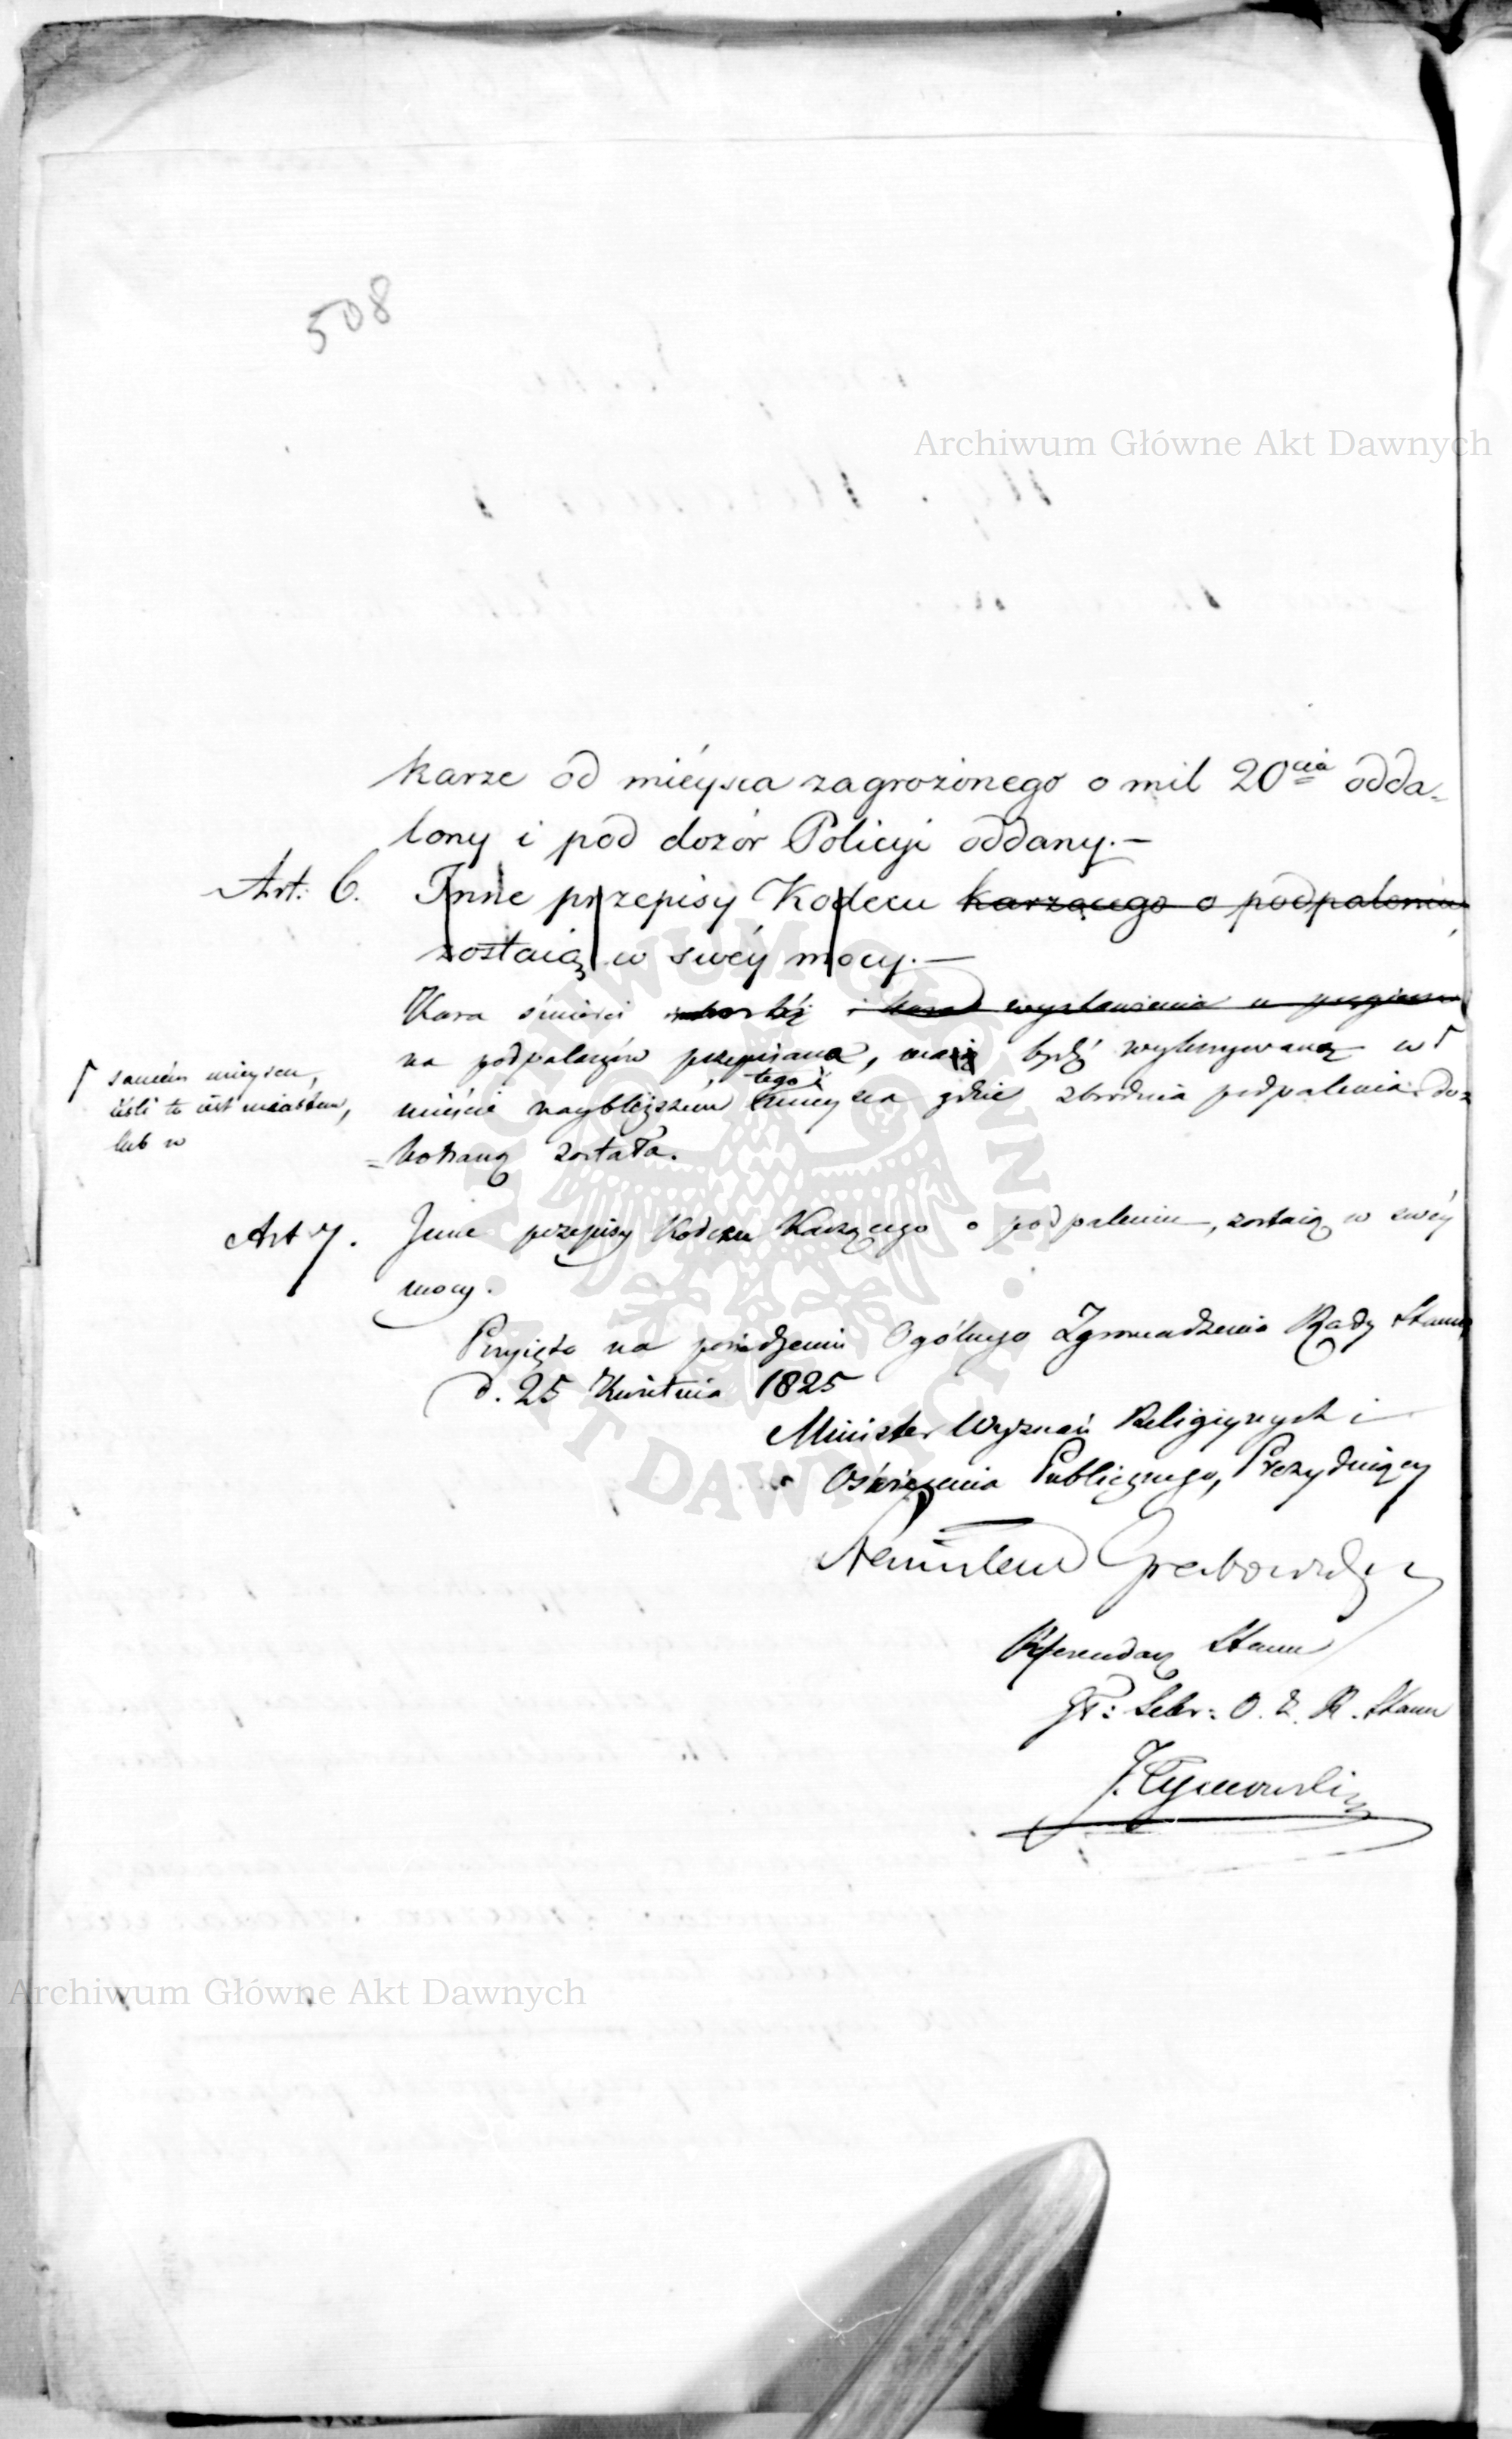 508
Archiwum Główne Akt Dawnych
karze od mieysca zagrożonego o mil 20cia odda-
lony i pod dozór Policyi oddany.—
Art: 6. Inne przepisy Kodexu karzącego o podpaleniu,
zostaią w swéy mocy.—
Kara śmierci i kara wystawienia u pręgierza
na podpalaczów przepisana, maią bydź wykonywaną w Γ
Γ samém mieyscu,
iéśli to iest miastem,
lub w
mieście naybliższem tego mieysca gdzie zbrodnia podpalenia do=
=konaną została.
Art 7. Inne przepisy Kodexu Karzącego o podpaleniu, zostaią w swéy
mocy.
Przyięto na posiedzeniu Ogólnego Zgromadzenia Rady Stanu
d. 25 Kwietnia 1825
Minister Wyznań Religiynych i
Oświecenia Publicznego, Prezyduiący
Stanisław Grabowski
Referendarz Stanu
Sekr: O. Z. R. Stanu
J. Tymowski
Archiwum Główne Akt Dawnych
ARCHIWUM GŁÓWNE · AKT DAWNYCH ·